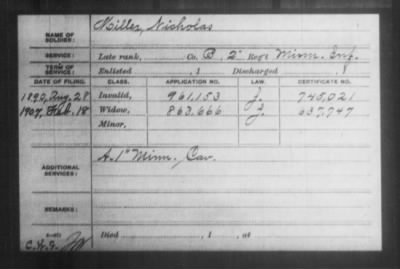 NAME OF SOLDIER: Miller, Nicholas
SERVICE: Late rank, Co. B, 2" Reg't Minn. Inf.
TERM OF SERVICE: Enlisted , 1 Discharged , 1
DATE OF FILING. CLASS. APPLICATION NO. LAW. CERTIFICATE NO.
1890, Aug. 28 Invalid, 961,153 J. 745,021
1907, Feb. 18 Widow, 863,666 J. 637,747
Minor,
ADDITIONAL SERVICES: A. 1" Minn. Cav.
REMARKS:
Died , 1 , at